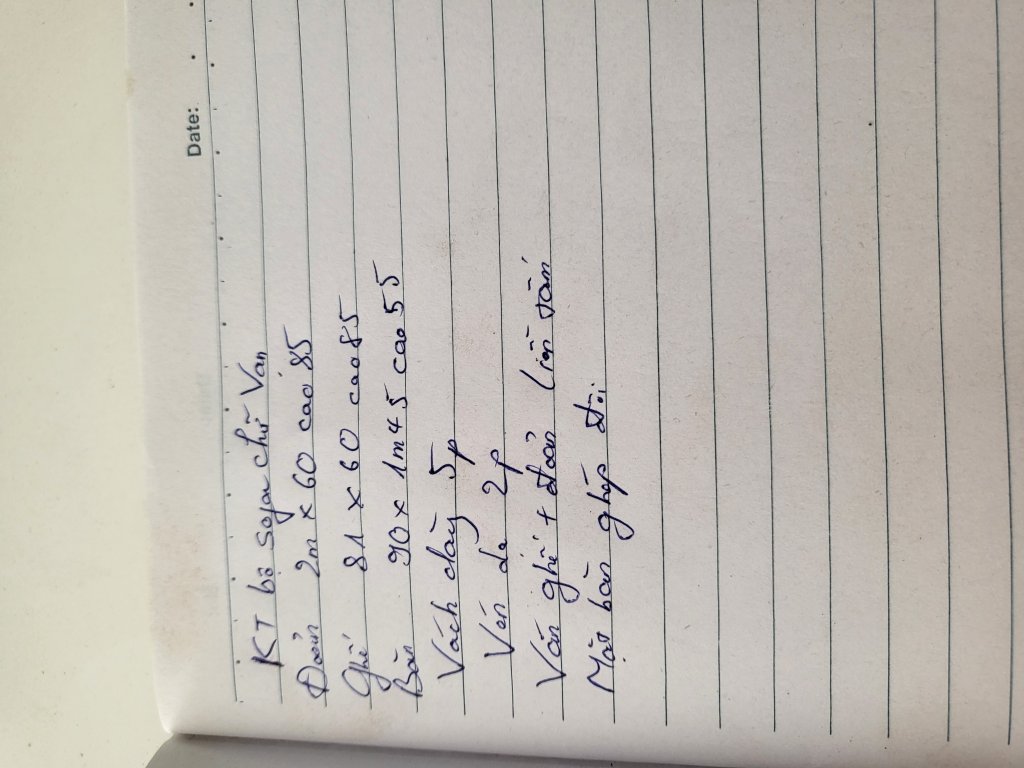 Date:
KT bộ Sofa chữ Vạn
Đoản 2m x 60 cao 85
Ghế 81 x 60 cao 85
Bàn 90 x 1m45 cao 55
Vách dày 5p
Ván da 2p
Ván ghế + đoản liền tấm
Mặt bàn ghép đôi